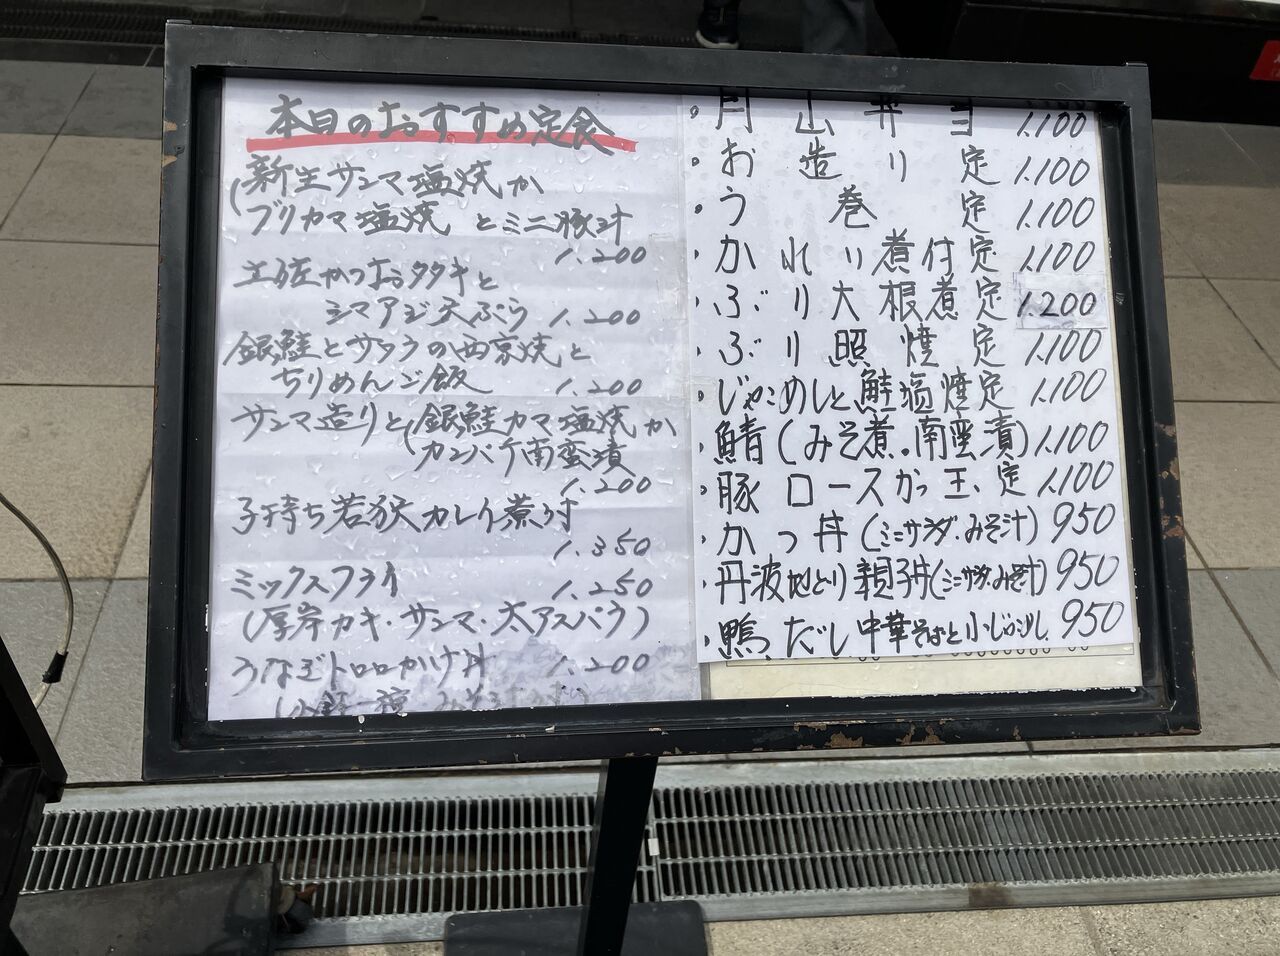 本日のおすすめ定食
新生サンマ塩焼か
ブリカマ塩焼 とミニ豚汁
1.200
土佐かつおタタキと
シマアジ天ぷら 1.200
銀鮭とサワラの西京焼と
ちりめんご飯 1.200
サンマ造りと(銀鮭カマ塩焼か
カンパチ南蛮漬
1.200
子持ち若狭カレイ煮付
1.350
ミックスフライ 1.250
(厚岸カキ・サンマ・太アスパラ)
うなぎトロロかけ丼 1.200
(小鉢一種 みそ
・月山弁当 1.100
・お造り定 1.100
・う巻定 1.100
・かれり煮付定 1.100
・ぶり大根煮定 1.200
・ぶり照焼定 1.100
・じゃこめしと鮭塩焼定 1.100
・鯖(みそ煮・南蛮漬) 1.100
・豚ロースかつ玉定 1.100
・かつ丼(ミニサラダ・みそ汁) 950
・丹波地とり親子丼(ミニサラダ・みそ汁) 950
・鴨だし中華そばと小じゃこめし 950